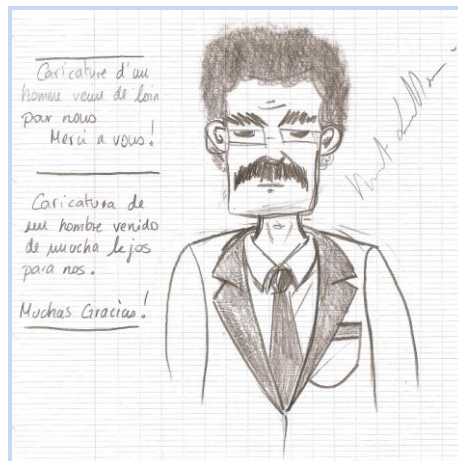 Caricature d'un
homme venu de loin
pour nous
Merci a vous!
Caricatura de
un hombre venido
de muocha lejos
para nos.
Muchas Gracias!